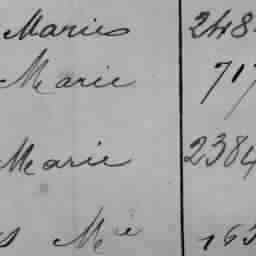 Maries 248
Marie 717
Marie 2384
s Mie 163